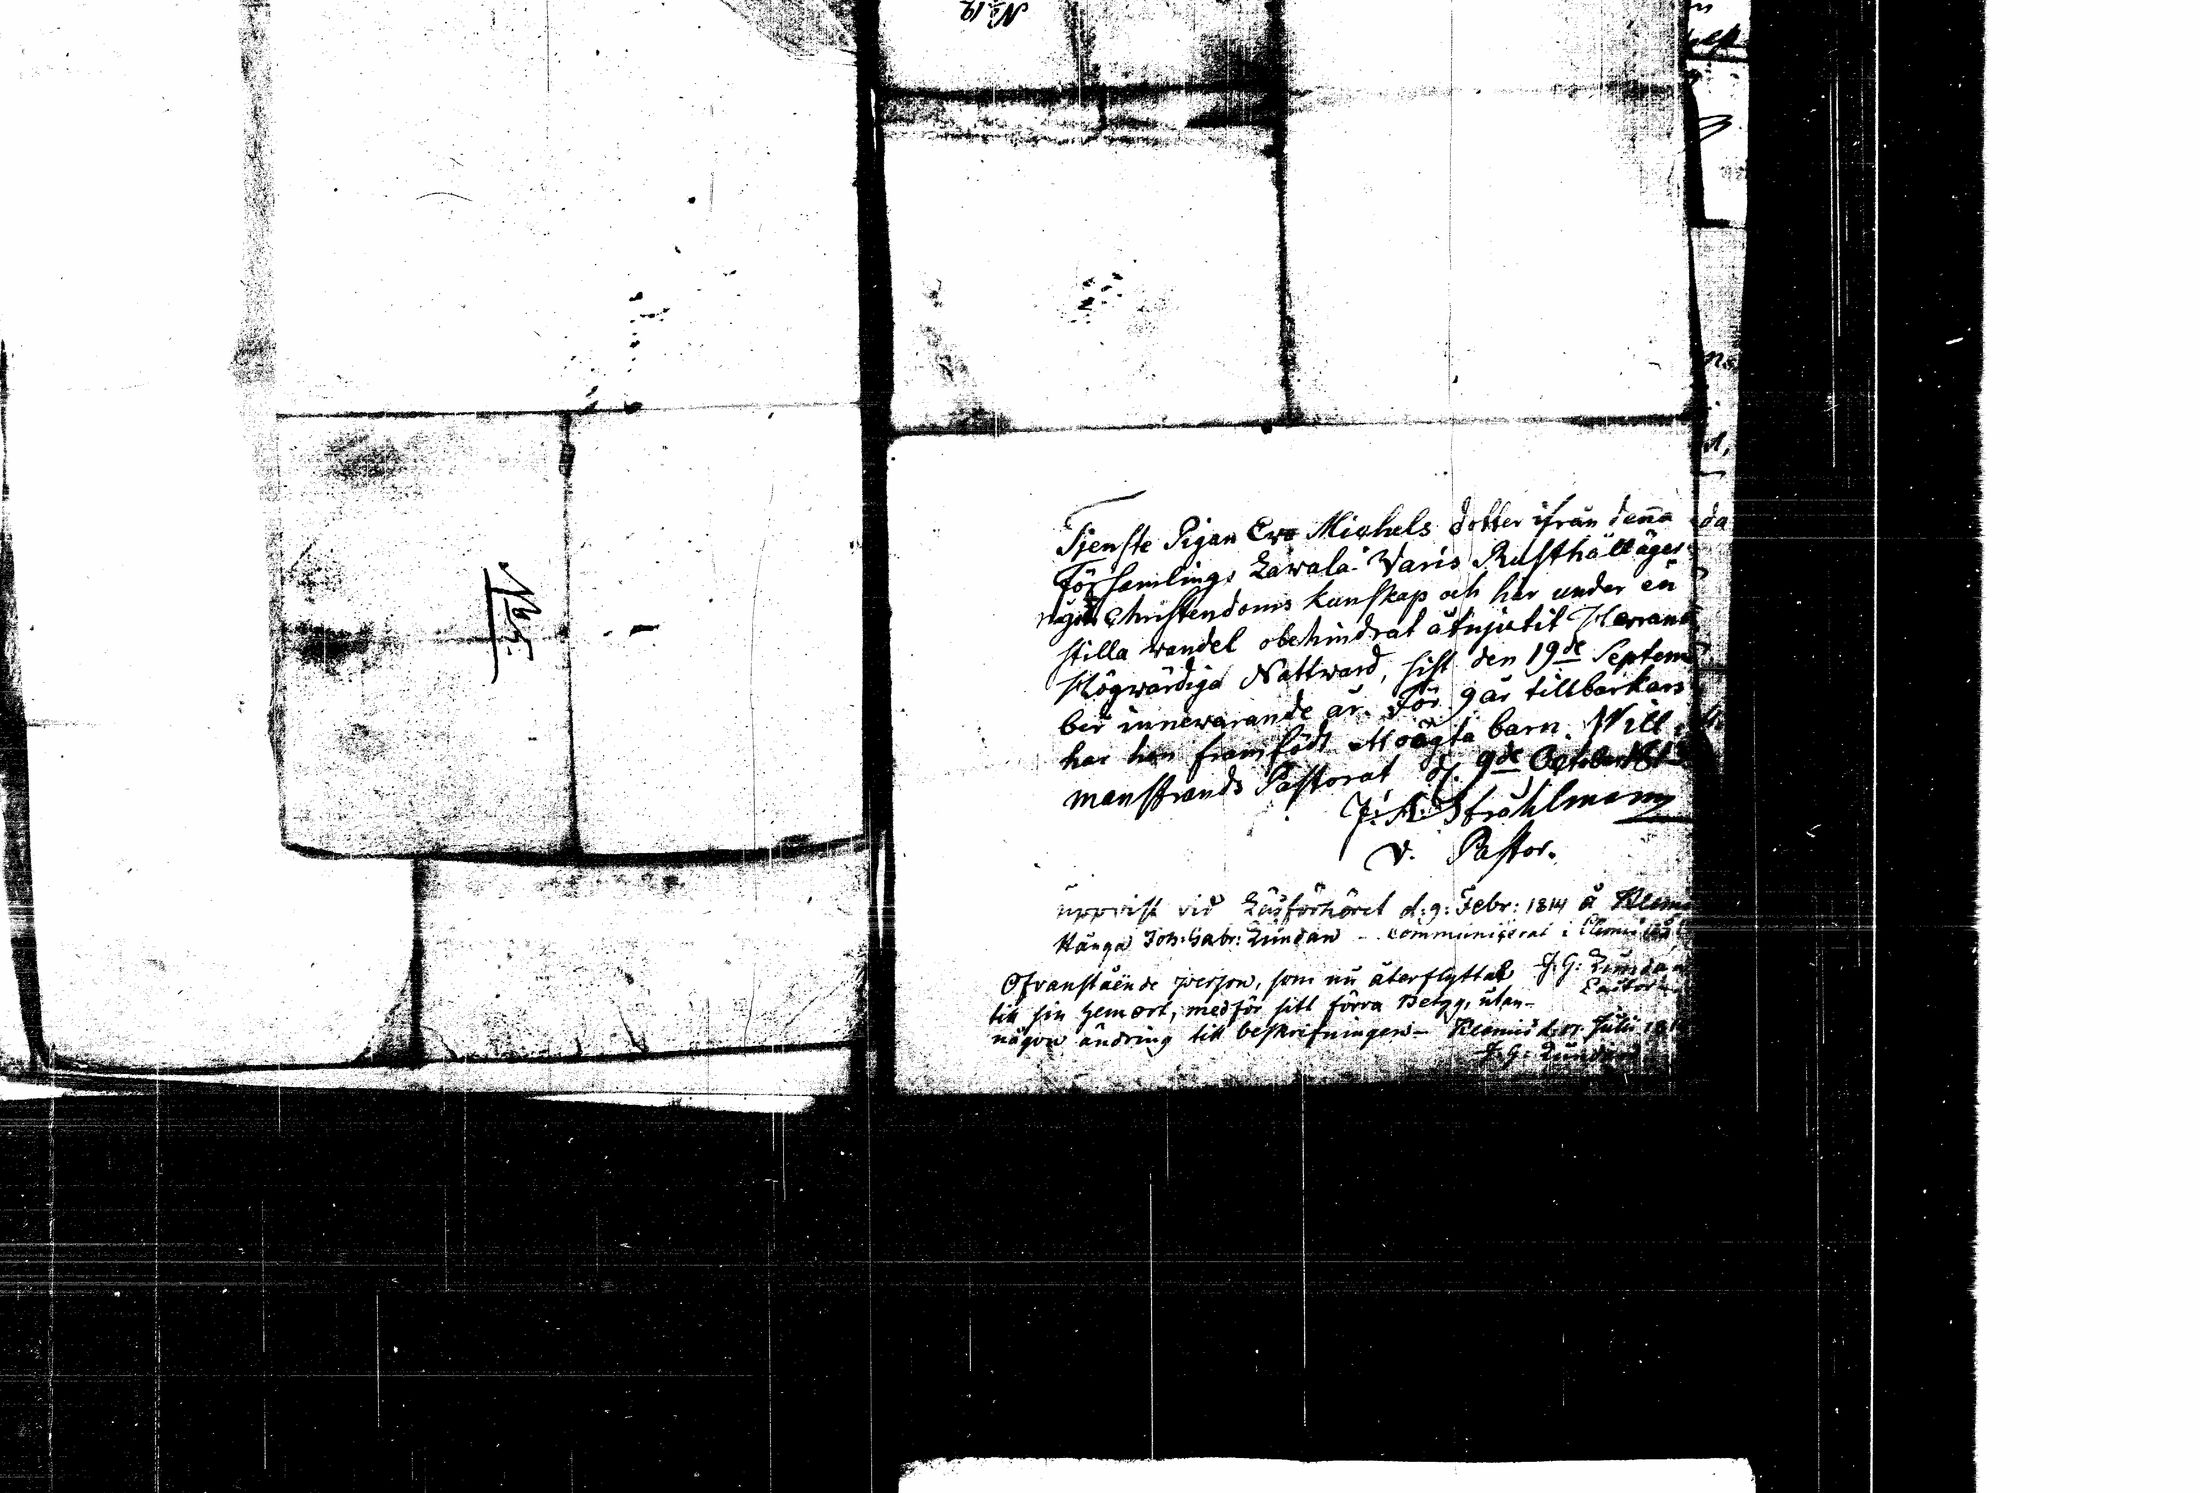 No 19
No 5.
Tjenste Pigan Ewa Michels dotter ifrån denna
Församlings Lawala Varis Rusthåll äger
något Christendoms kunskap och har under en
stilla wandel obehindrat åtnjutit Herrans
Högwärdiga Nattward, sist den 19de Septem
ber innewarande år. För 9 år tillbarkars
har hon framfödt ett oägta barn. Will
manstrands Pastorat d. 9de October
J. A. Strahlmann
v. Pastor.
uppvist vid Läsförhöret d. 9. Febr: 1814 å
Joh: Gabr: Lundan - communicerat i
Ofvanstående person, som nu återflyttar J. G. Lundan
till sin hemort, medför sitt förra Betyg, utan
någon ändring till beskrifningen - Klemis d. Julii
J. G. Lundan